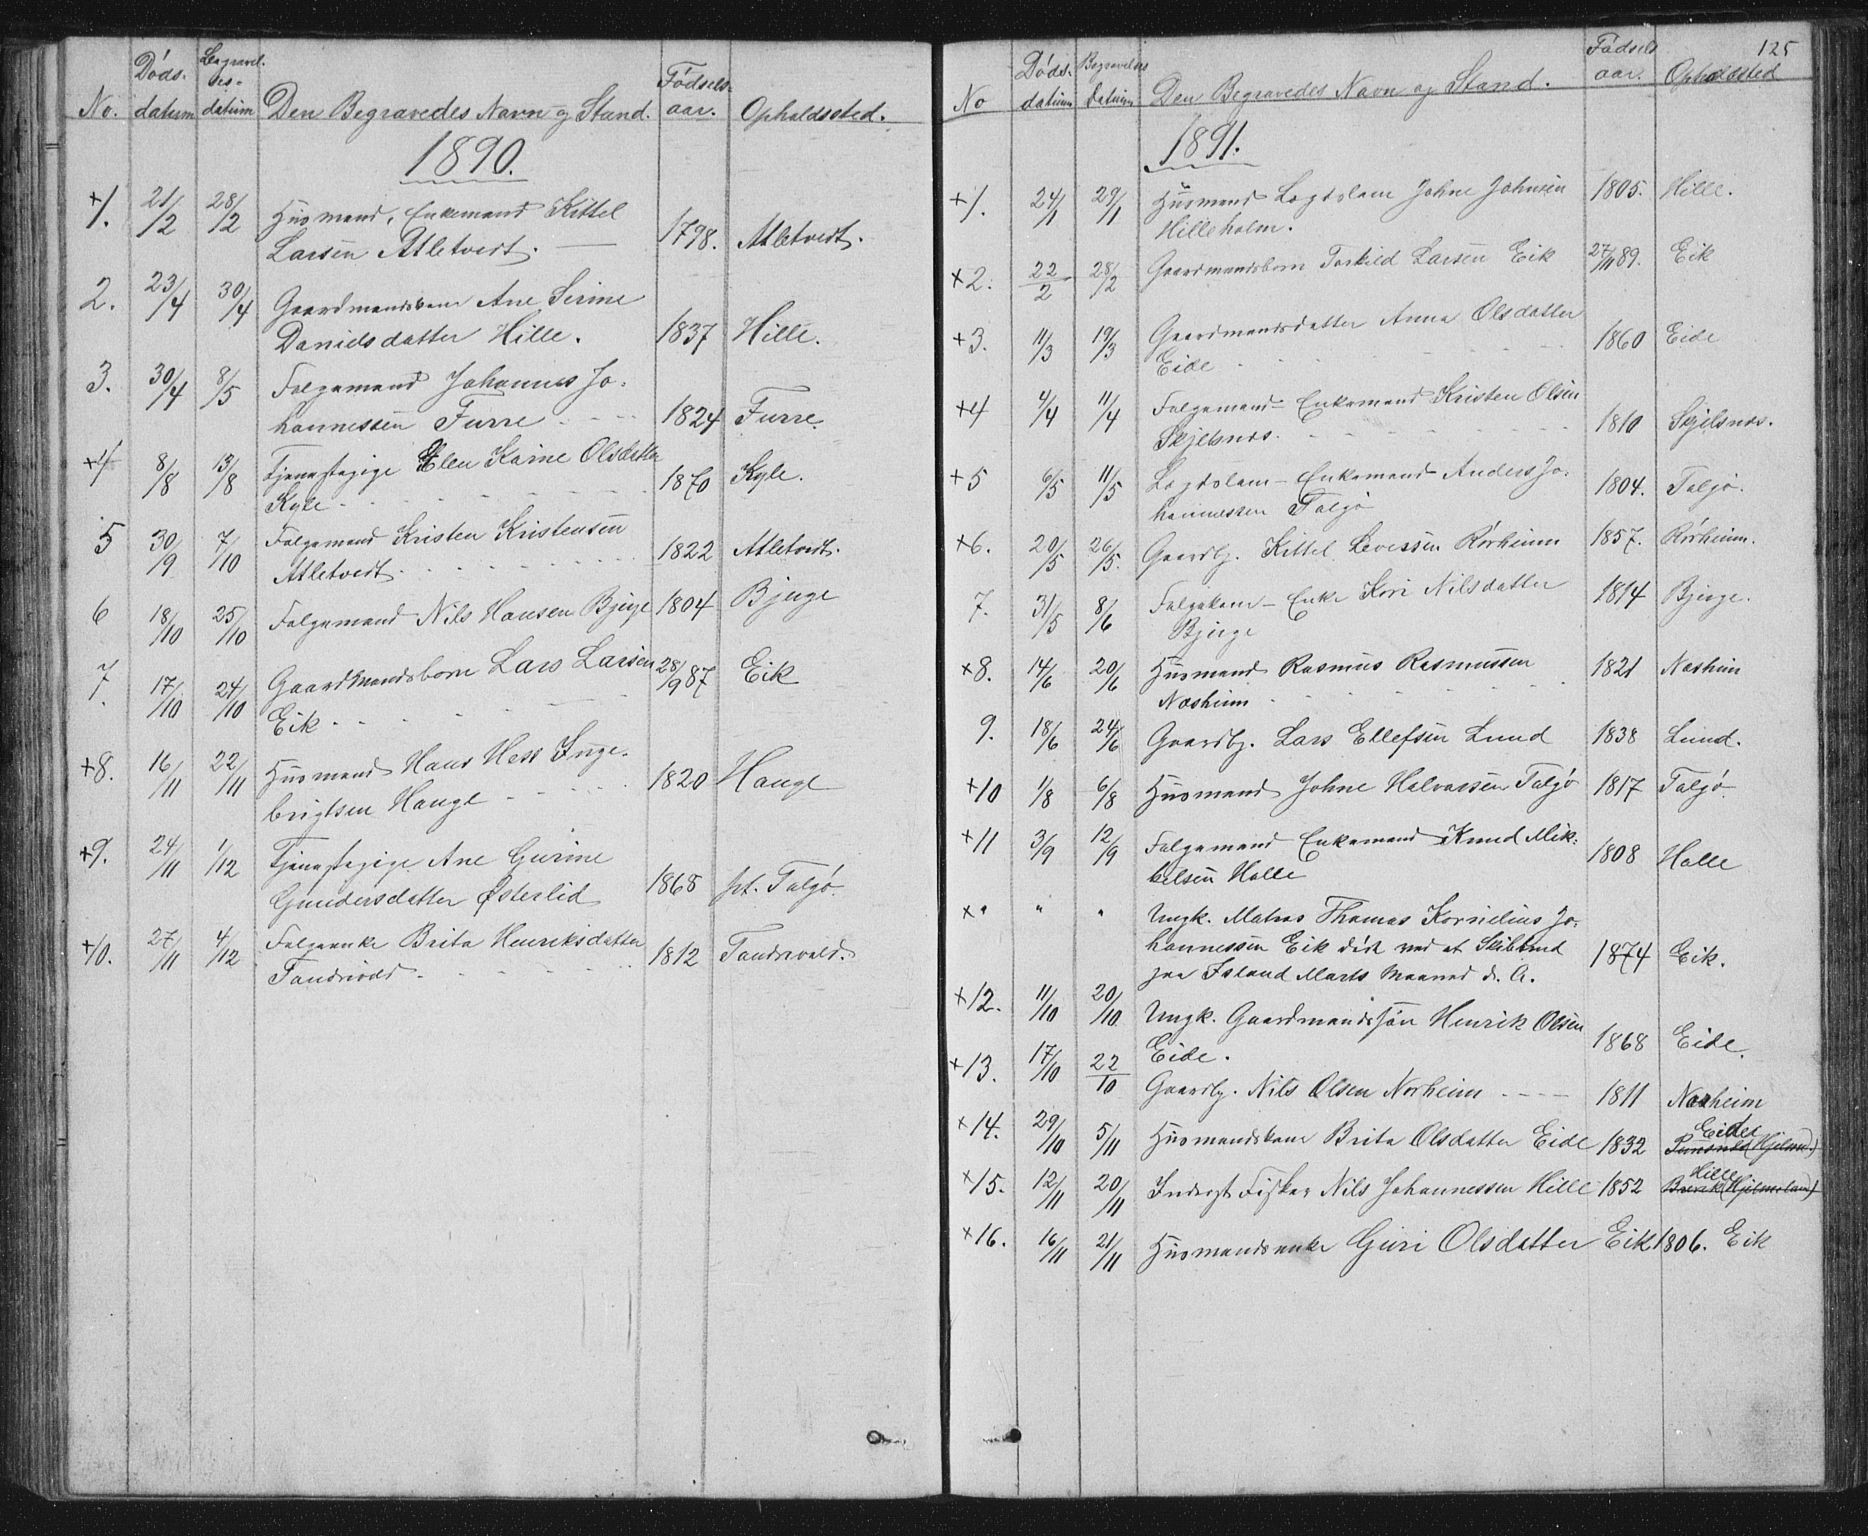 No. Døds-datum Begravel-ses-datum Den Begravedes Navn og Stand. Fødsels-aar. Opholdssted.
1890.
+1. 21/12 28/12 Husmand, Enkemand Kittel
Larsen Atletvedt. — 1798. Atletvedt.
2. 23/4 30/4 Gaardmandskone Ane Serine
Danielsdatter Hille. 1837 Hille.
3. 30/4 8/5 Folgemand Johannes Jo-
hannessen Furre 1824 Furre.
+4 8/8 13/8 Tjenestepige Elen Karine Olsdatter
Kyle 1870 Kyle.
5 30/9 7/10 Folgemand Kristen Kristensen
Atletvedt. 1822 Atletvedt.
6 18/10 25/10 Folgemand Nils Hansen Bjerge 1804 Bjerge
7. 17/10 24/10 Gaardmandsbarn Lars Larsen
Eik 28/9 87 Eik
+8. 16/11 22/11 Husmand Hans Hess Inge-
brigtsen Hauge 1820 Hauge
+9. 24/11 1/12 Tjenestepige Ane Gurine
Gundersdatter Østerlid 1868 pt. Talgø.
+10. 27/11 4/12 Folgeenke Brita Henriksdatter
Tandsvold 1812 Tandsvold.
125
No Døds-datum Begravelses Datum Den Begravedes Navn og Stand. Fødsels aar. Opholdssted
1891.
+1. 24/1 29/1 Husmand Lægdslem Johne Johnsen 1805. Hille.
Hilleholm.
+2. 22/2 28/2 Gaardmandsbarn Torkild Larsen Eik 27/11 89. Eik
+3. 11/3 19/3 Gaardmandsdatter Anna Olsdatter
Eide 1860 Eide
+4 4/4 11/4 Folgemand - Enkemand Kristen Olsen
Skjelsnæs. 1810 Skjelsnæs.
+5 6/5 11/5 Lægdslem - Enkemand Anders Jo-
hannessen Talgø 1804. Talgø.
+6. 20/5 26/5. Gaardbr. Kittel Levessen Rørheim 1857. Rørheim.
7. 31/5 8/6 Folgekone - Enke Kari Nilsdatter 1814 Bjerge.
Bjerge
+8. 14/6 20/6 Husmand Rasmus Rasmussen 1821 Næsheim
Næsheim
9. 18/6 24/6 Gaardbr. Lars Ellefsen Lund 1838 Lund.
+10 1/8 6/8 Husmand Johne Halvorsen Talgø 1817 Talgø.
+11 3/9 12/9 Folgemand Enkemand Knud Mik-
kelsen Halle 1808 Halle
+" " " Ungk. Matros Thomas Kornelius Jo-
hannessen Eik død ved et Skibbrud 1874 Eik.
paa Island Marts Maaned d. A.
+12. 11/10 20/10. Ungk. Gaardmandssøn Henrik Olsen
Eide. 1868 Eide.
+13. 17/10 22/10 Gaardbr. Nils Olsen Norheim 1811 Norheim
+14. 29/10 5/11 Husmandskone Brita Olsdatter Eide 1832 Eide
+15. 12/11 20/11 Inderst Fisker Nils Johannessen Hille 1852 Hille
Brevik (Hjelmeland)
+16. 16/11 21/11 Husmandsenke Guri Olsdatter Eik 1806. Eik